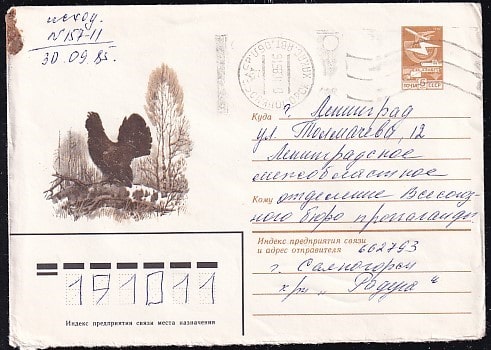 исход.
№ 157-11
30.09.85.
ПОЧТА СССР
Куда г. Ленинград
ул. Толмачева, 12
Ленинградское
межобластное
Кому отделение Всесоюз-
ного бюро пропаганды
Индекс предприятия связи
и адрес отправителя 662793
г. Саяногорск
х/ри „Радуга“
191011
Индекс предприятия связи места назначения